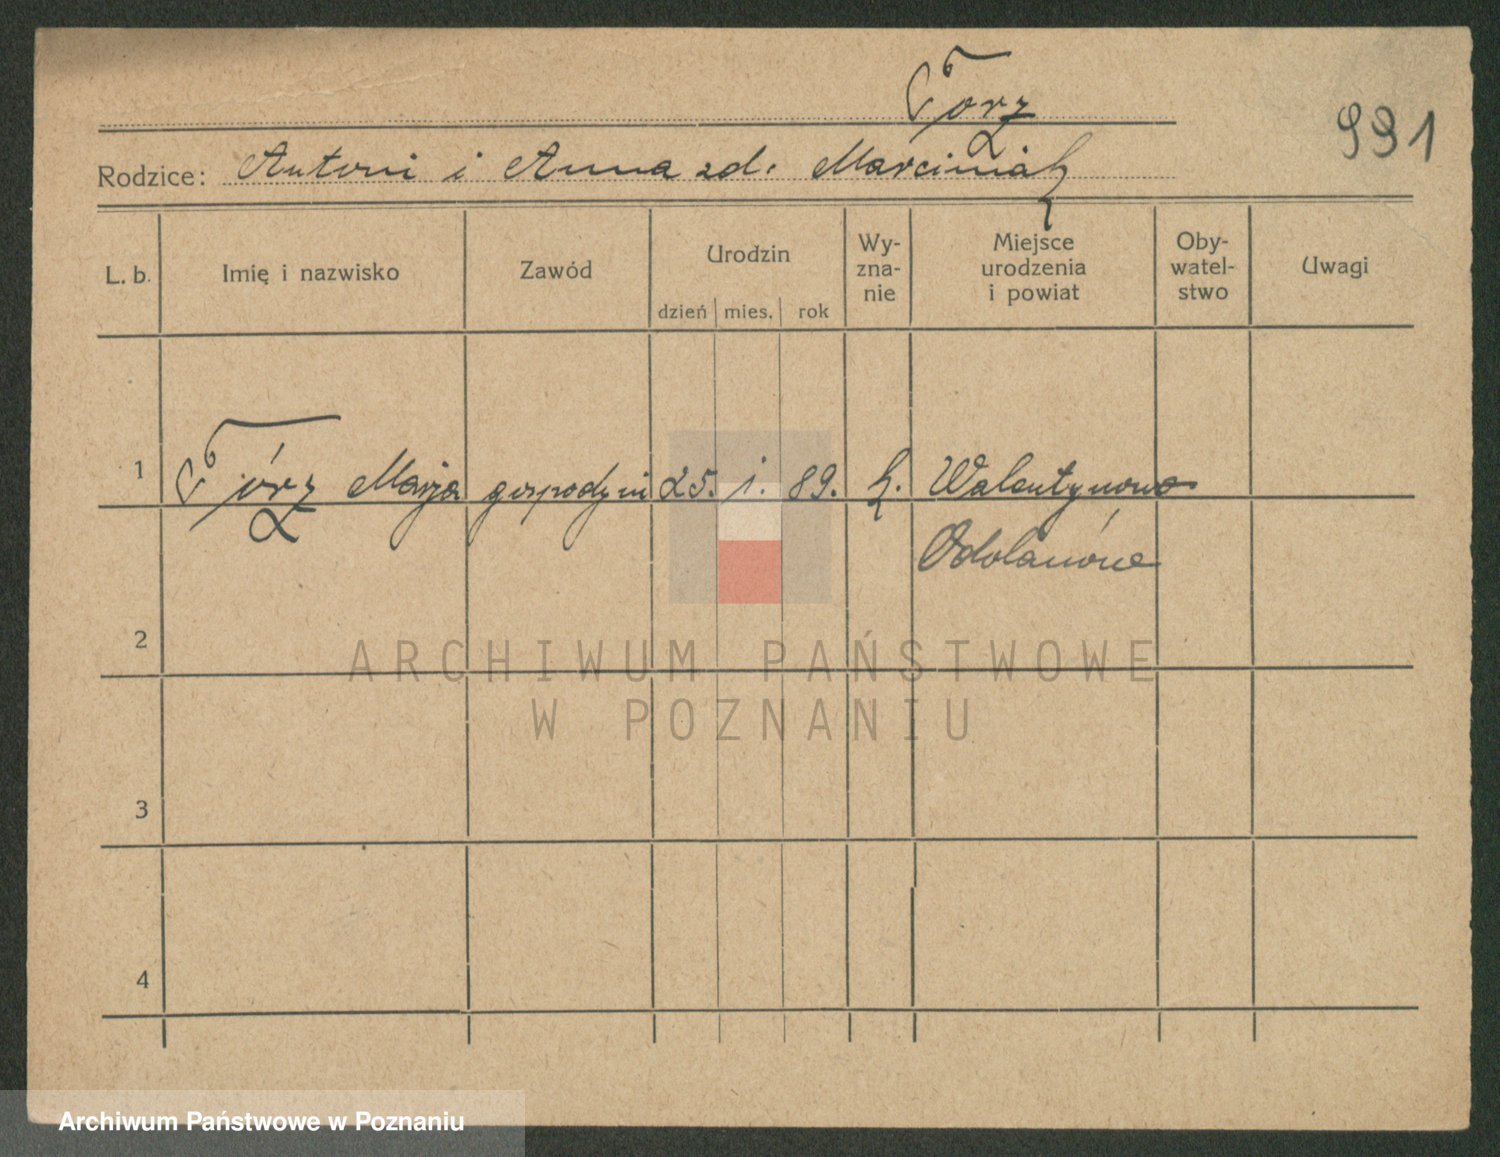 Torz
991
Rodzice: Antoni i Anna zd. Marciniak
L. b.
Imię i nazwisko
Zawód
Urodzin
dzień
mies.
rok
Wy-
zna-
nie
Miejsce
urodzenia
i powiat
Oby-
watel-
stwo
Uwagi
1 Tórz Marja gospodyni 25. 1. 89. k. Walentynowo
Odolanów
2
ARCHIWUM PAŃSTWOWE
W POZNANIU
3
4
Archiwum Państwowe w Poznaniu